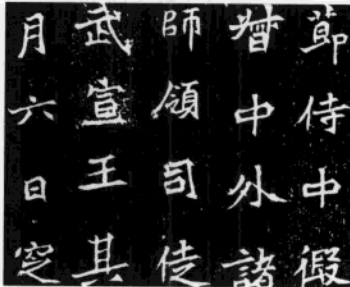 莭侍中徦
督中外諸
師領司徒
武宣王其
月六日窆